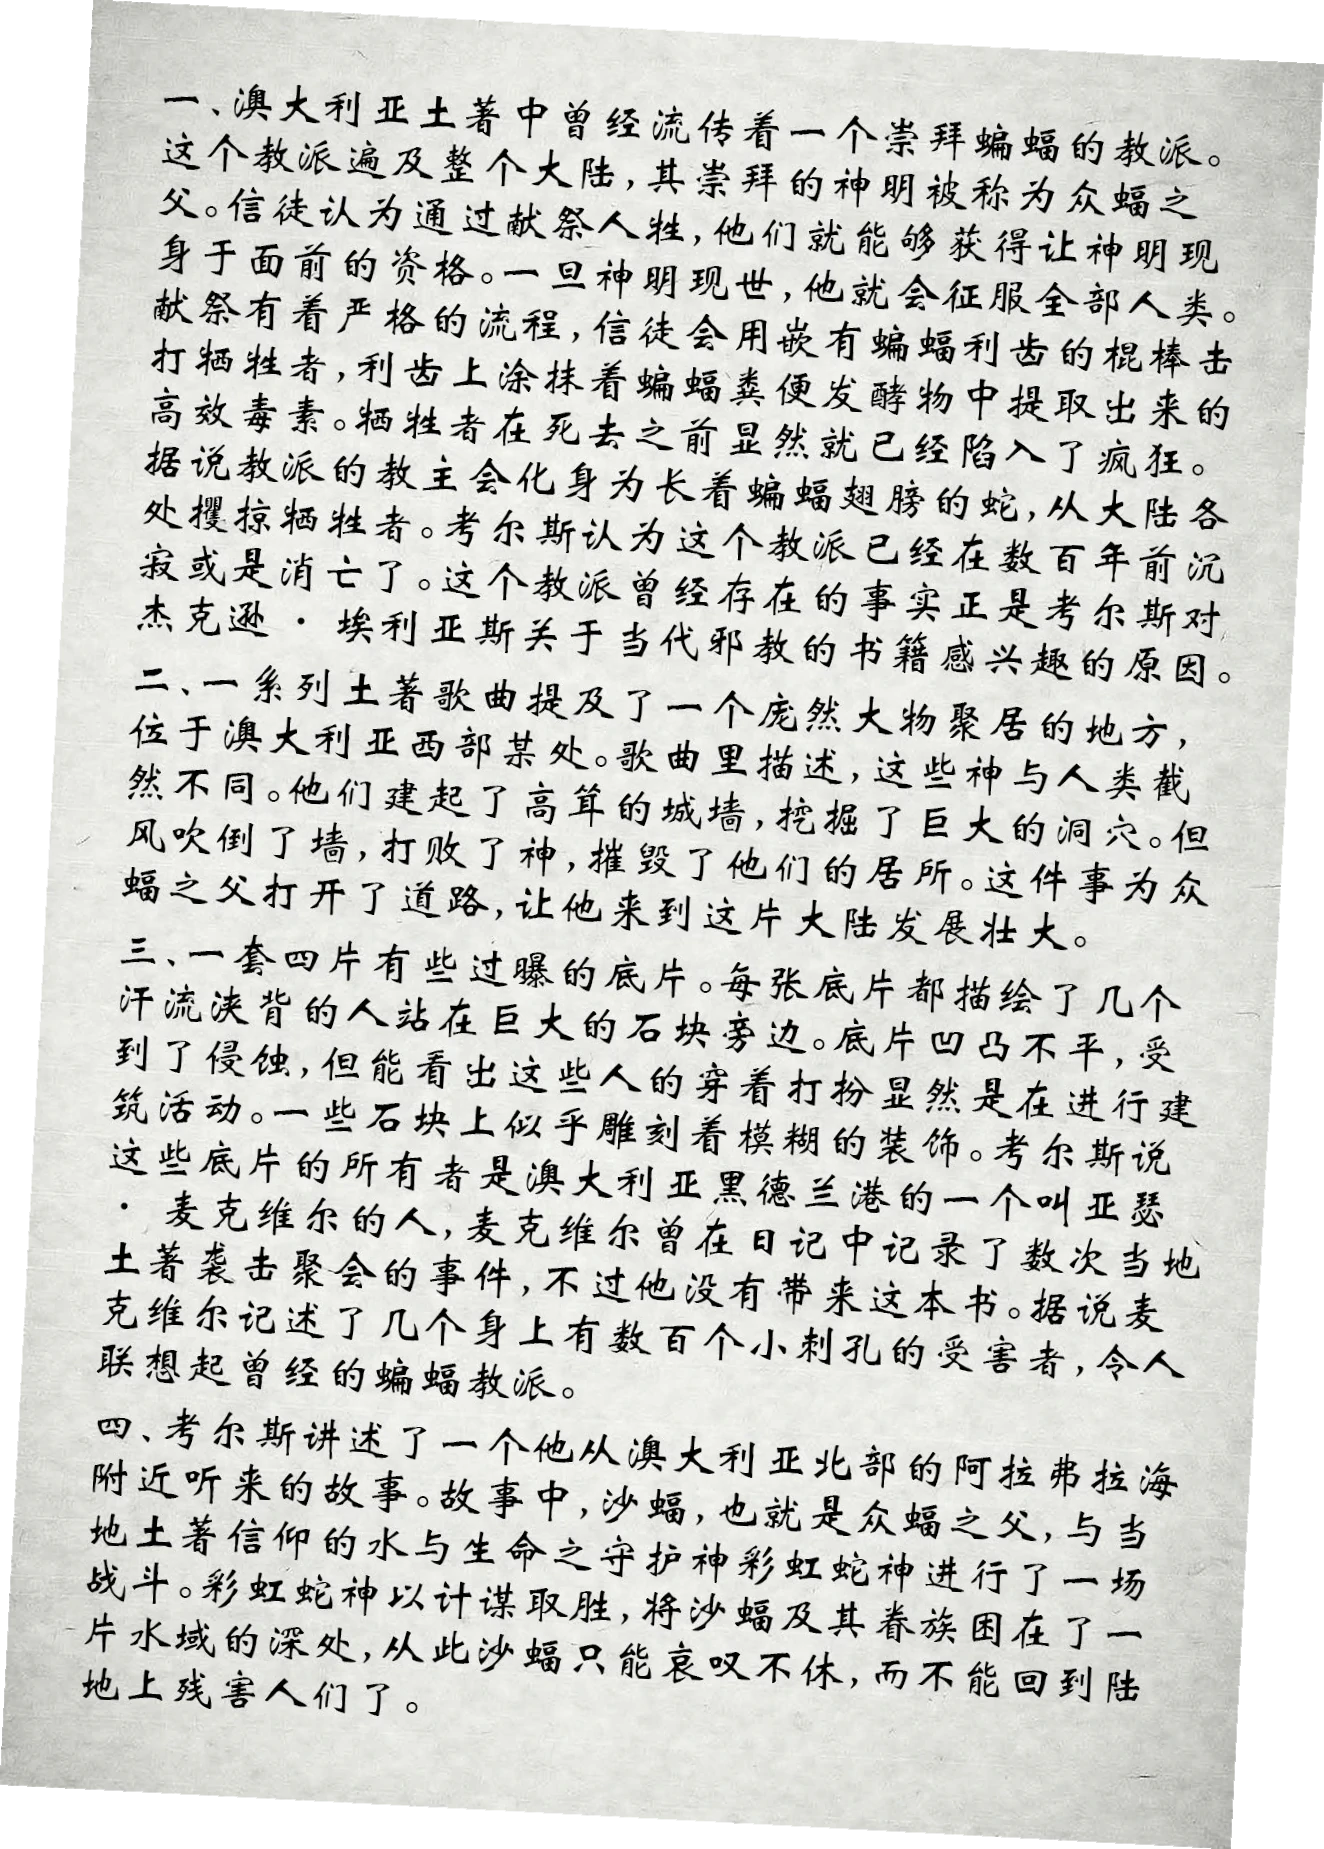 一、澳大利亚土著中曾经流传着一个崇拜蝙蝠的教派。
这个教派遍及整个大陆，其崇拜的神明被称为众蝠之
父。信徒认为通过献祭人牲，他们就能够获得让神明现
身于面前的资格。一旦神明现世，他就会征服全部人类。
献祭有着严格的流程，信徒会用嵌有蝙蝠利齿的棍棒击
打牺牲者，利齿上涂抹着蝙蝠粪便发酵物中提取出来的
高效毒素。牺牲者在死去之前显然就已经陷入了疯狂。
据说教派的教主会化身为长着蝙蝠翅膀的蛇，从大陆各
处攫掠牺牲者。考尔斯认为这个教派已经在数百年前沉
寂或是消亡了。这个教派曾经存在的事实正是考尔斯对
杰克逊·埃利亚斯关于当代邪教的书籍感兴趣的原因。
二、一系列土著歌曲提及了一个庞然大物聚居的地方，
位于澳大利亚西部某处。歌曲里描述，这些神与人类截
然不同。他们建起了高耸的城墙，挖掘了巨大的洞穴。但
风吹倒了墙，打败了神，摧毁了他们的居所。这件事为众
蝠之父打开了道路，让他来到这片大陆发展壮大。
三、一套四片有些过曝的底片。每张底片都描绘了几个
汗流浃背的人站在巨大的石块旁边。底片凹凸不平，受
到了侵蚀，但能看出这些人的穿着打扮显然是在进行建
筑活动。一些石块上似乎雕刻着模糊的装饰。考尔斯说
这些底片的所有者是澳大利亚黑德兰港的一个叫亚瑟
·麦克维尔的人，麦克维尔曾在日记中记录了数次当地
土著袭击聚会的事件，不过他没有带来这本书。据说麦
克维尔记述了几个身上有数百个小刺孔的受害者，令人
联想起曾经的蝙蝠教派。
四、考尔斯讲述了一个他从澳大利亚北部的阿拉弗拉海
附近听来的故事。故事中，沙蝠，也就是众蝠之父，与当
地土著信仰的水与生命之守护神彩虹蛇神进行了一场
战斗。彩虹蛇神以计谋取胜，将沙蝠及其眷族困在了一
片水域的深处，从此沙蝠只能哀叹不休，而不能回到陆
地上残害人们了。